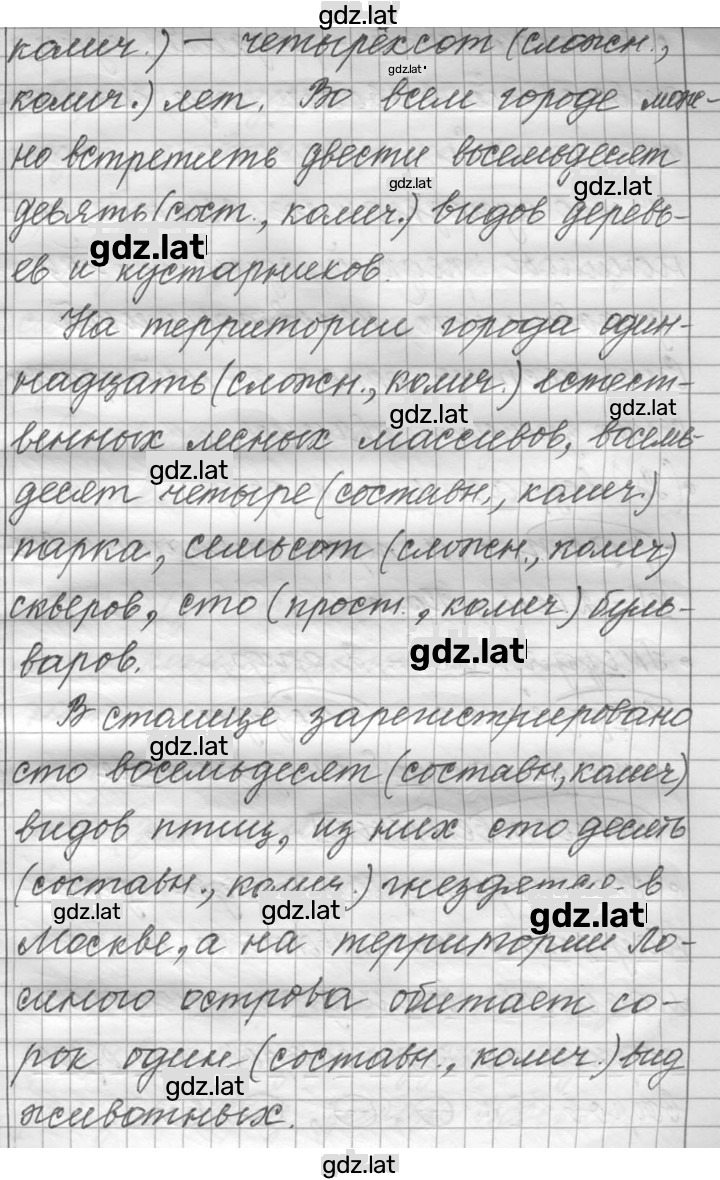 gdz.lat
колич.) – четырёхсот (сложн.,
gdz.lat
колич.) лет. Во всем городе мож-
но встретить двести восемьдесят
gdz.lat
gdz.lat
девять (сост., колич.) видов деревь-
gdz.lat
ев и кустарников.
На территории города один-
надцать (сложн., колич.) естест-
gdz.lat
gdz.lat
венных лесных массивов, восемь-
gdz.lat
десят четыре (составн., колич.)
парка, семьсот (сложн., колич)
скверов, сто (прост., колич.) буль-
gdz.lat
варов.
В столице зарегистрировано
gdz.lat
сто восемьдесят (составн, колич)
видов птиц, из них сто десять
(составн., колич.) гнездятся в
gdz.lat
gdz.lat
gdz.lat
Москве, а на территории Ло-
синого острова обитает со-
рок один (составн., колич.) вид
gdz.lat
животных.
gdz.lat